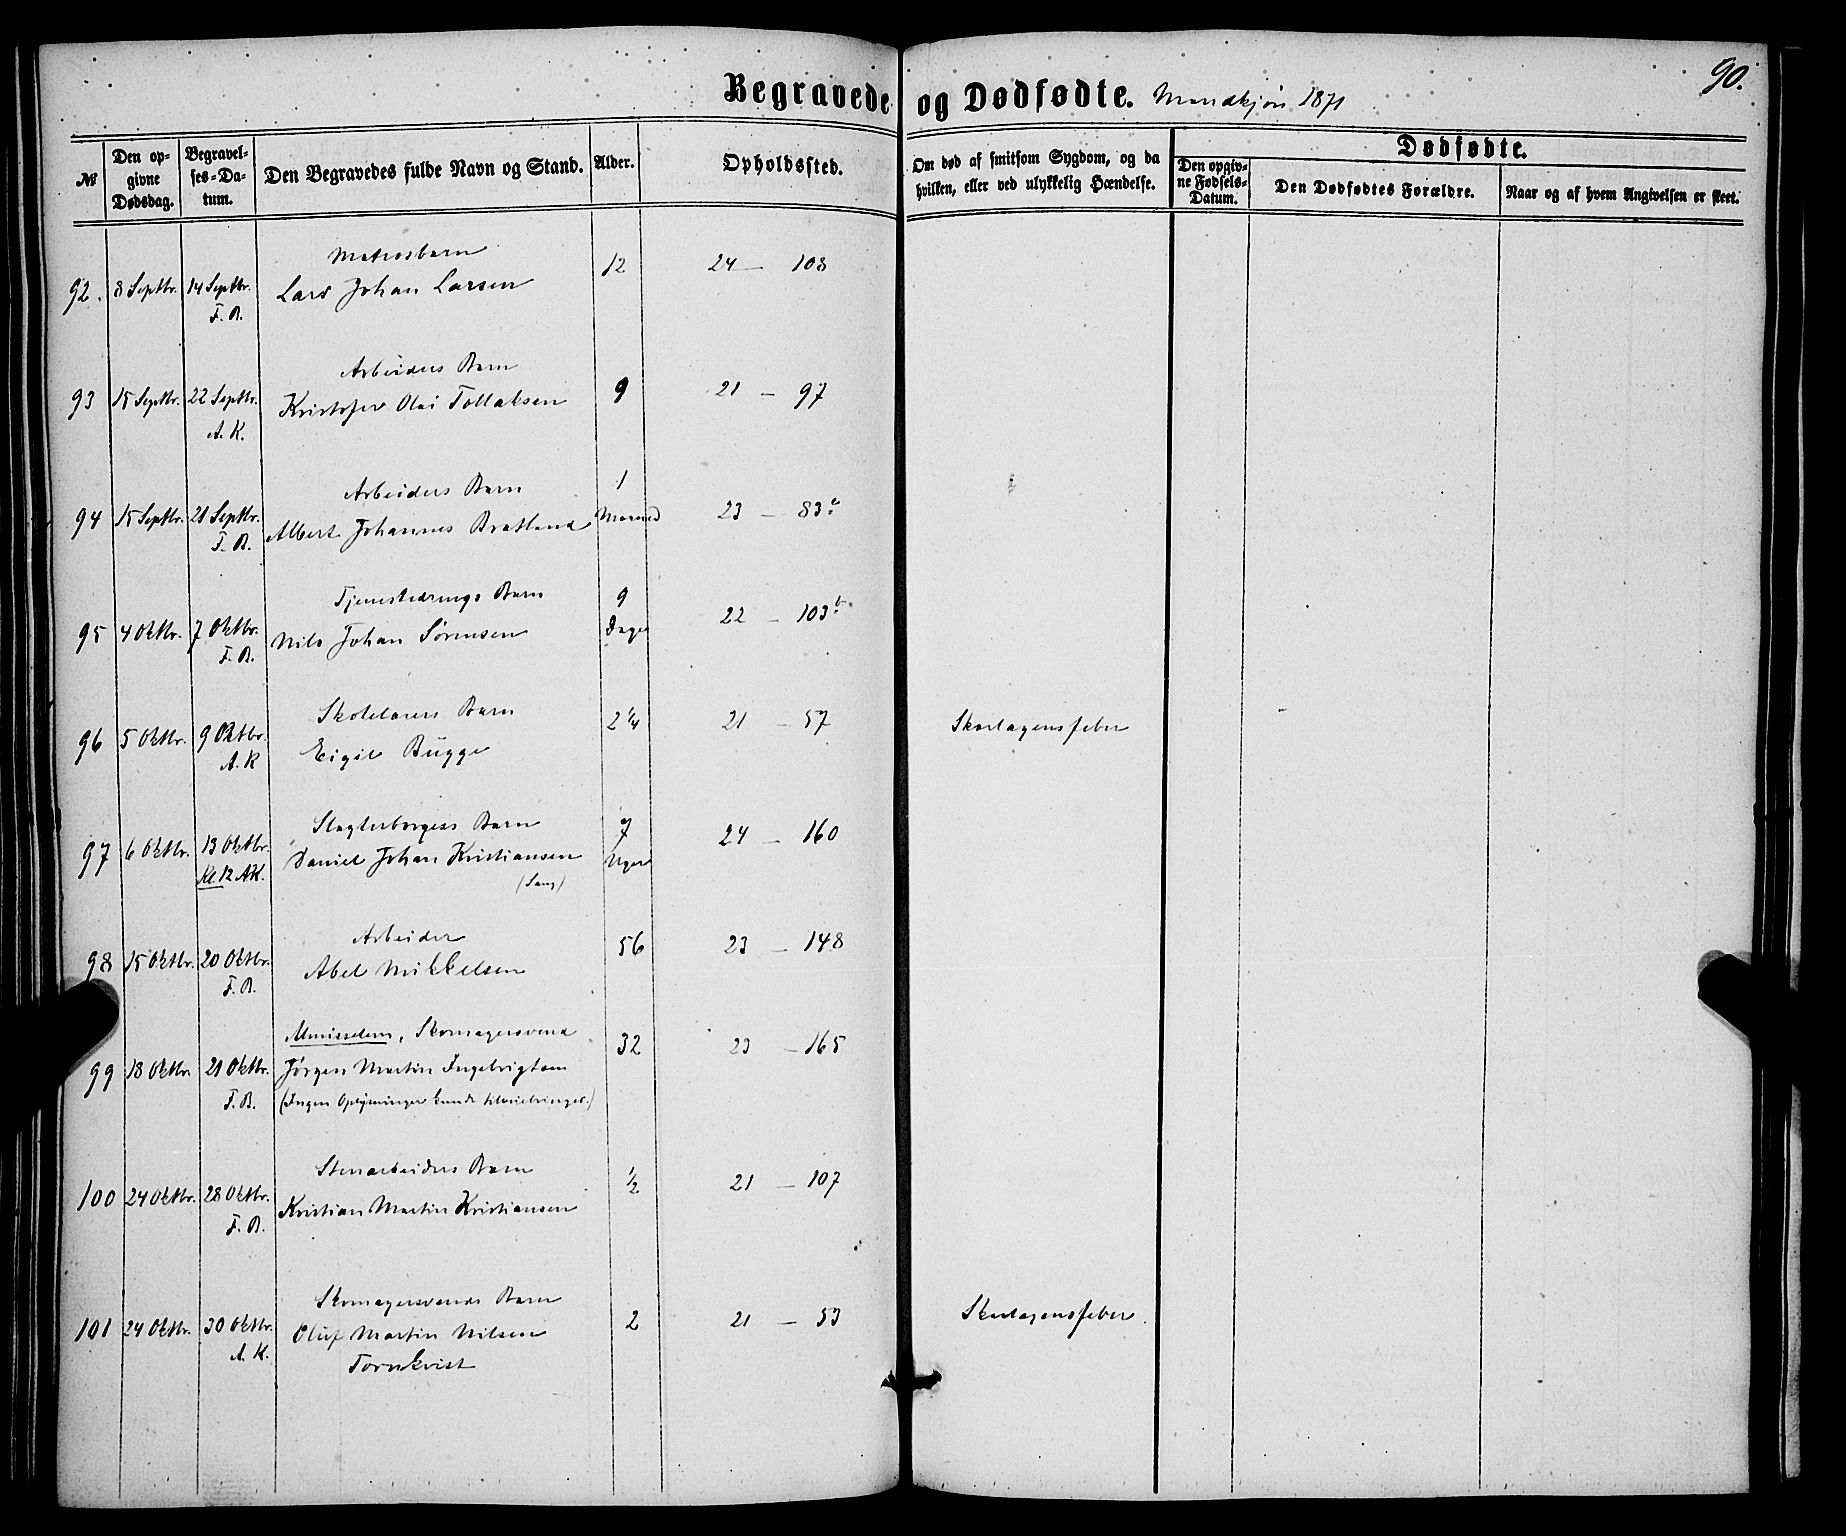 90.
Begravede og Dødfødte. Mandkjøn 1871
№
Den opgivne Dødsdag.
Begravelses-Datum.
Den Begravedes fulde Navn og Stand.
Alder.
Opholdssted.
Om død af smitsom Sygdom, og da hvilken, eller ved ulykkelig Hændelse.
Dødfødte.
Den opgivne Fødsels-Datum.
Den Dødfødtes Forældre.
Naar og af hvem Angivelsen er skeet.
Matrosbarn
92. 8 Septbr. 14 Septbr. Lars Johan Larsen 12 24 — 108
F. B.
Arbeiders Barn
93 15 Septbr. 22 Septbr. Kristofer Olai Tollaksen 9 21 — 97
A. K.
Arbeiders Barn 1
94 15 Septbr. 21 Septbr. Albert Johannes Bratland Maaned 23 — 83a
F. B.
Tjenestedrengs Barn 9
95 4 Oktbr. 7 Oktbr. Nils Johan Sørensen Dage 22 — 103b
F. B.
Skolelærers Barn
96 5 Oktbr. 9 Oktbr. Eigil Bugge 2 1/4 21 — 57 Skarlagensfeber
A. K
Slagterborgers Barn 7
97 6 Oktbr. 13 Oktbr. Daniel Johan Kristiansen Uger 24 — 160
Kl. 12 A.K. (Sang)
Arbeider
98 15 Oktbr. 20 Oktbr. Abel Mikkelsen 56 23 — 148
F. B.
Almisselem, Skomagersvend
99 18 Oktbr. 21 Oktbr. Jørgen Martin Ingebrigtsen 32 23 — 165
F. B. (Ingen Oplysninger kunde tilveiebringes.)
Stenarbeiders Barn
100 24 Oktbr. 28 Oktbr. Kristian Martin Kristiansen 1/2 21 — 107
F. B.
Skomagersvends Barn
101 24 Oktbr. 30 Oktbr. Oluf Martin Nilsen 2 21 — 53 Skarlagensfeber.
A. K. Tornkvist